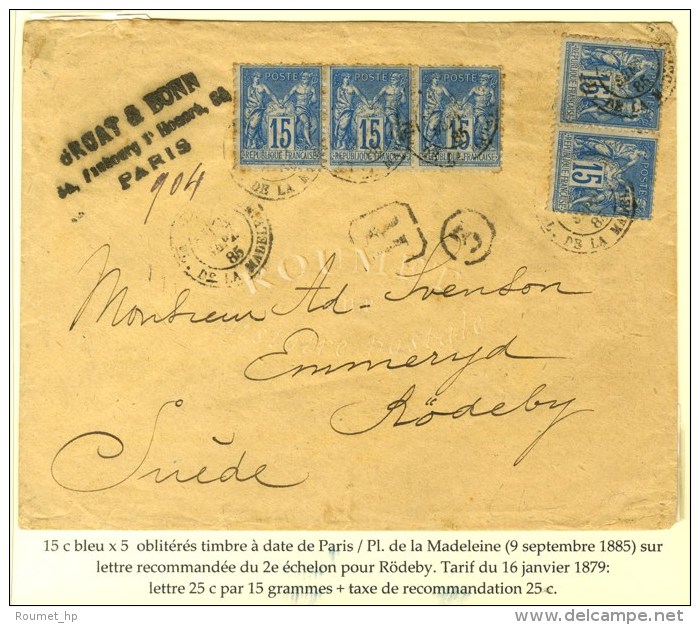 GROAT & BONN
Faubourg St Honoré, 68
PARIS
904
POSTE POSTE POSTE
15 15 15
REPUBLIQUE FRANÇAISE REPUBLIQUE FRANÇAISE REPUBLIQUE FRANÇAISE
15
15
PL. DE LA MADELEINE
85
R
5
ROUMET
Monsieur Ad. Svenson
Emmeryd
Rödeby
Suède
15 c bleu x 5 oblitérés timbre à date de Paris / Pl. de la Madeleine (9 septembre 1885) sur
lettre recommandée du 2e échelon pour Rödeby. Tarif du 16 janvier 1879:
lettre 25 c par 15 grammes + taxe de recommandation 25 c.
Roumet_hp
delcampe.net